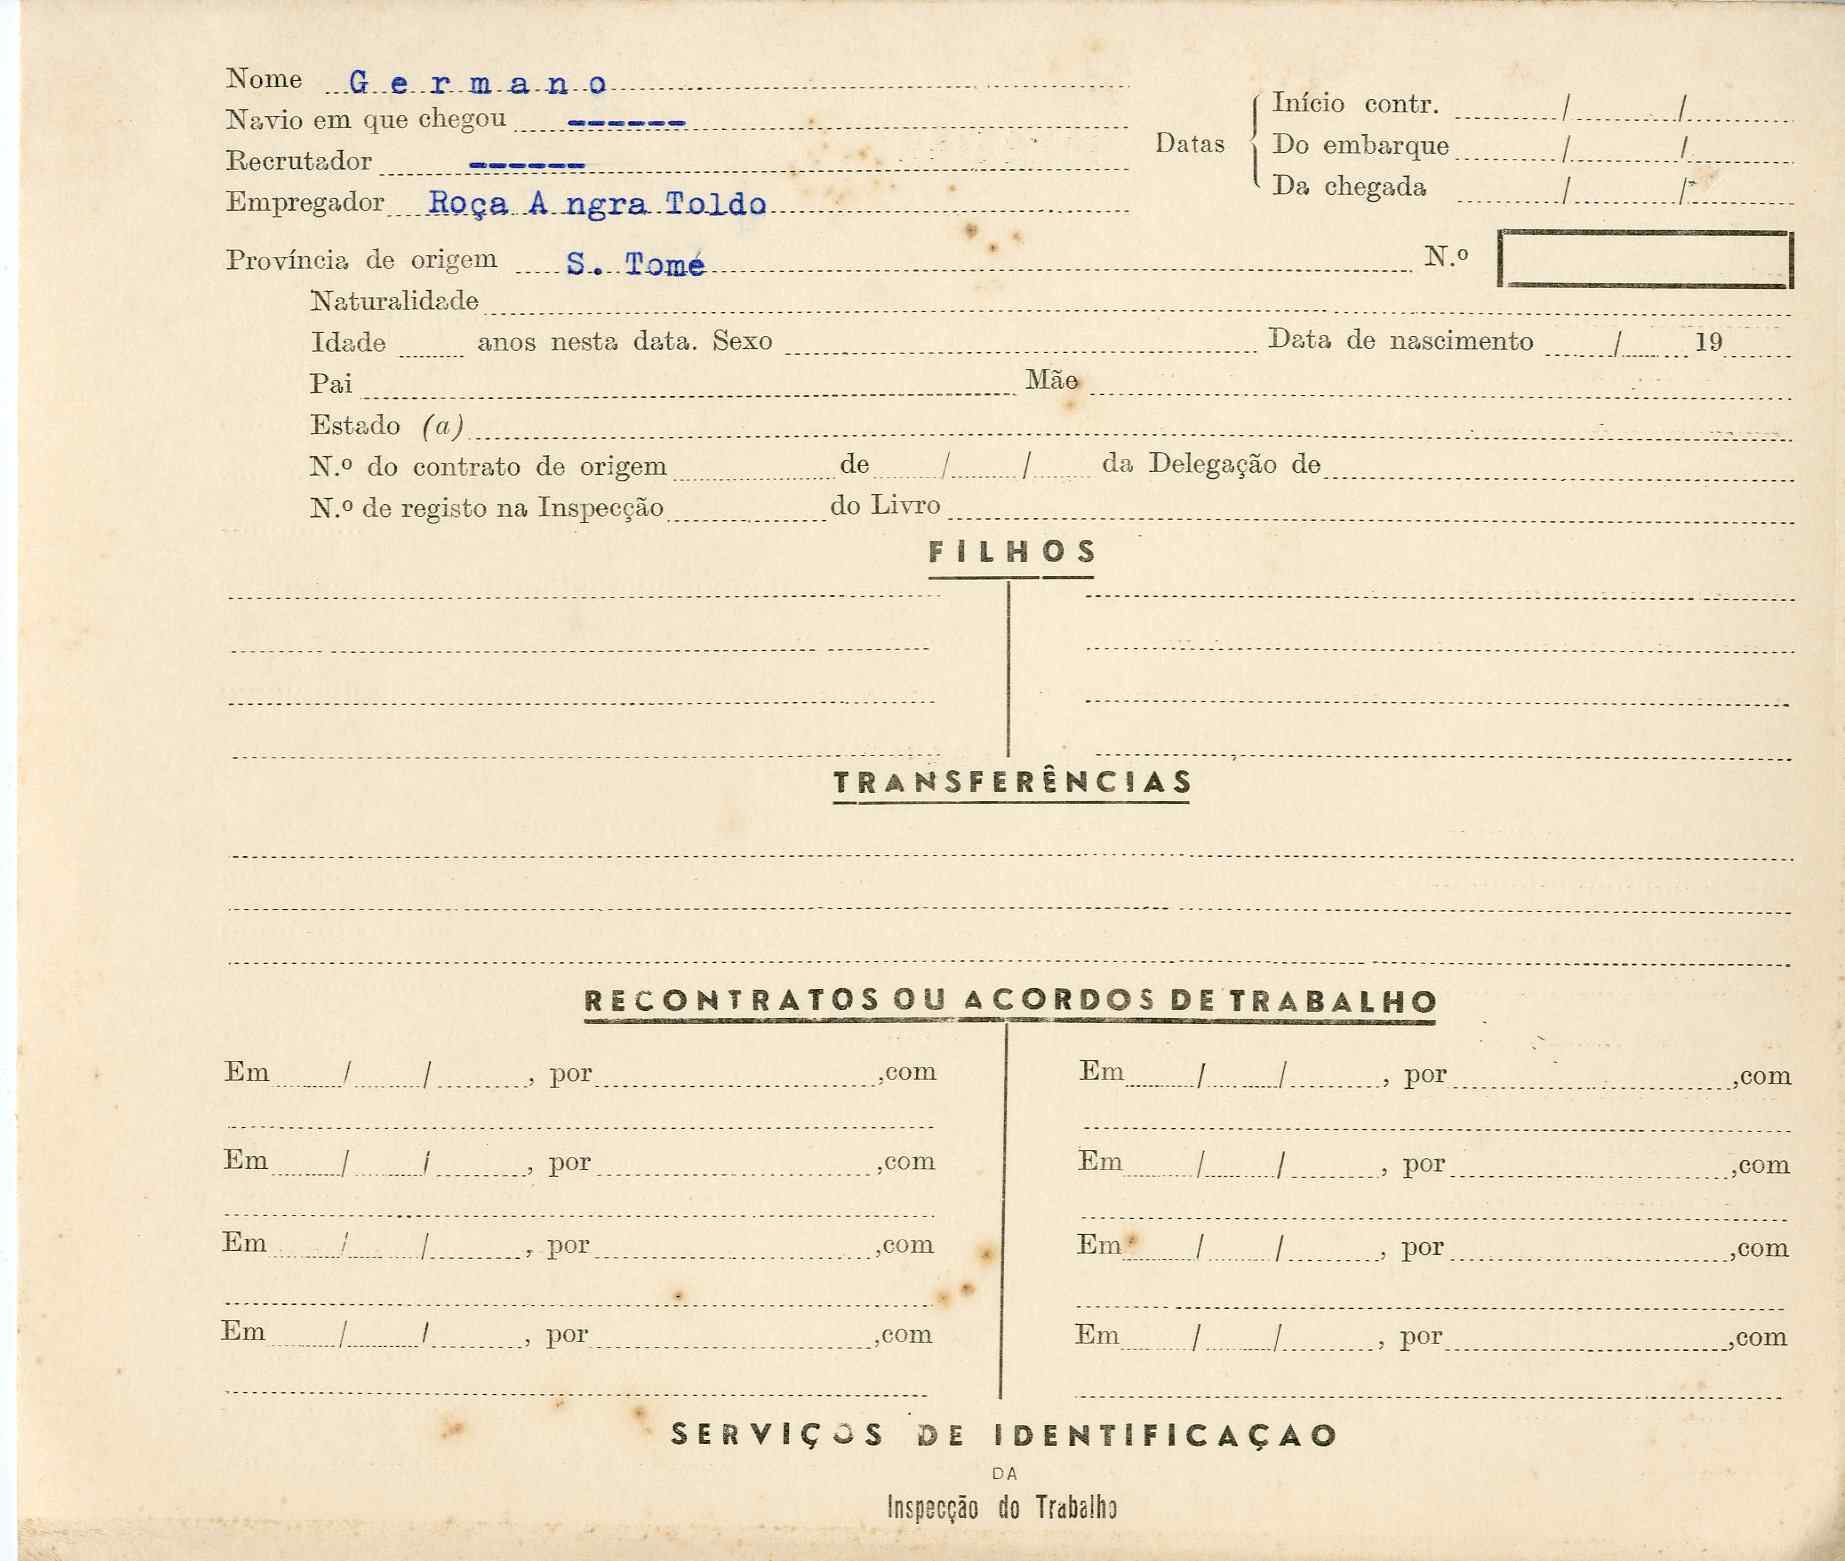 Nome G e r m a n o
Navio em que chegou ------
Recrutador ------
Empregador Roça A ngra Toldo
Datas
Início contr. / /
Do embarque / /
Da chegada / /
Província de origem S. Tomé N.º
Naturalidade
Idade anos nesta data. Sexo Data de nascimento / 19
Pai Mãe
Estado (a)
N.º do contrato de origem de / / da Delegação de
N.º de registo na Inspecção do Livro
FILHOS
TRANSFERÊNCIAS
RECONTRATOS OU ACORDOS DE TRABALHO
Em / / , por ,com
Em / / , por ,com
Em / / , por ,com
Em / / , por ,com
Em / / , por ,com
Em / / , por ,com
Em / / , por ,com
Em / / , por ,com
SERVIÇOS DE IDENTIFICAÇAO
DA
Inspecção do Trabalho